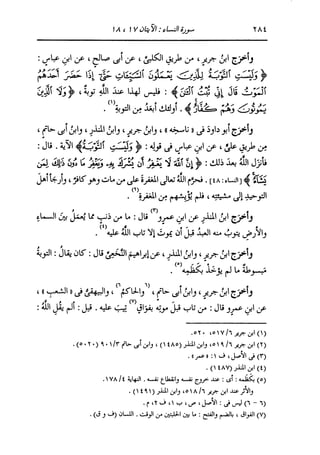 ٢٨٤
سورة النساء : الآيتان ١٧ ، ١٨
وأخرج ابنُ جريرٍ ، من طريقِ الكلبيِّ ، عن أبى صالحٍ ، عن ابنِ عباسٍ :
﴿ وَلَيْسَتِ التَّوْبَةُ لِلَّذِينَ يَعْمَلُونَ السَّيِّئَاتِ حَتَّىٰ إِذَا حَضَرَ أَحَدَهُمُ
الْمَوْتُ قَالَ إِنِّي تُبْتُ الْآنَ ﴾ : فليس لهذا عندَ اللَّهِ توبةٌ ، ﴿ وَلَا الَّذِينَ
يَمُوتُونَ وَهُمْ كُفَّارٌ ﴾ . أولئك أبعدُ مِن التوبةِ(١) .
وأخرَج أبو داودَ فى « ناسخِه » ، وابنُ جريرٍ ، وابنُ المنذرِ ، وابنُ أبى حاتمٍ ،
مِن طريقِ عليٍّ ، عن ابنِ عباسٍ فى قولِه : ﴿ وَلَيْسَتِ التَّوْبَةُ ﴾ الآية . قال :
فأنزَل اللَّهُ بعدَ ذلك : ﴿ إِنَّ اللَّهَ لَا يَغْفِرُ أَن يُشْرَكَ بِهِ وَيَغْفِرُ مَا دُونَ ذَٰلِكَ لِمَن
يَشَاءُ ﴾ [النساء : ٤٨] . فحرَّم اللَّهُ تعالى المغفرةَ على مَن مات وهو كافرٌ ، وأرجأ أهلَ
التوحيدِ إلى مشيئتِه ، فلم يؤيِّسْهم مِن المغفرةِ(٢) .
وأخرَج ابنُ المنذرِ عن ابنِ عمرٍو(٣) قال : ما مِن ذنبٍ مما يُعمَلُ بينَ السماءِ
والأرضِ يتوبُ منه العبدُ قبلَ أن يموتَ إلا تاب اللَّهُ عليه(٤) .
وأخرَج ابنُ جريرٍ ، وابنُ المنذرِ ، عن إبراهيمَ النَّخَعيِّ قال : كان يقالُ : التوبةُ
مبسوطةٌ ما لم يؤخَذْ بكَظَمِه(٥) .
وأخرَج ابنُ جريرٍ ، وابنُ أبى حاتمٍ ، (٦والحاكمُ٦) ، والبيهقيُّ فى « الشعبِ » ،
عن ابنِ عمرٍو قال : مَن تاب قبلَ موتِه بفُوَاقٍ(٧) تِيبَ عليه . قيل : ألم يقُلِ اللَّهُ :
(١) ابن جرير ٦/ ٥١٧، ٥٢٠.
(٢) ابن جرير ٦/ ٥١٩، وابن المنذر (١٤٨٥) ، وابن أبى حاتم ٣/ ٩٠١ (٥٠٢٠) .
(٣) فى الأصل ، ف ١ : « عمر » .
(٤) ابن المنذر (١٤٨٧) .
(٥) بكظمه : أى : عند خروج نفسه وانقطاع نفسه . النهاية ٤/ ١٧٨.
والأثر عند ابن جرير ٦/ ٥١٨، وابن المنذر (١٤٩١) .
(٦ - ٦) ليس فى : الأصل ، ص ، ب ١، ف ٢، م .
(٧) الفواق ، بالضم والفتح : ما بين الحلبتين من الوقت . اللسان (ف و ق) .